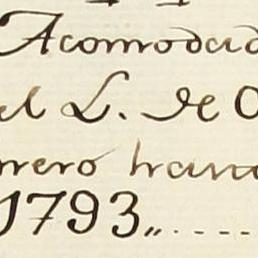 Acomodad
el L. de O
rrero hara
1793,,....